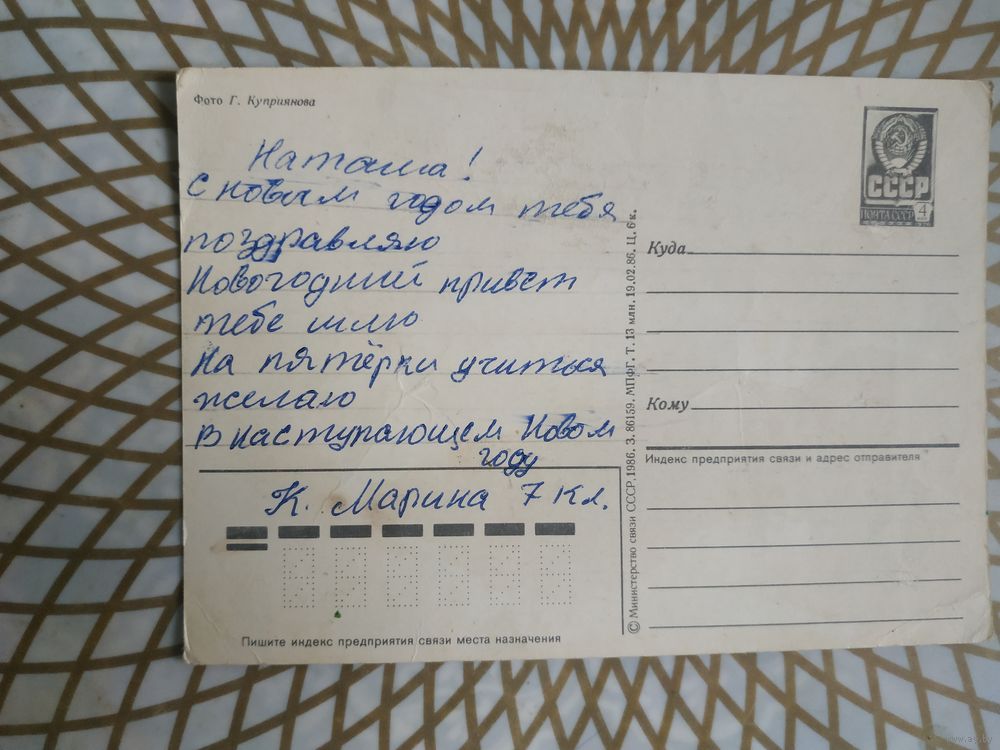 Фото Г. Куприянова
Наташа!
С новым годом тебя
поздравляю
Новогодний привет
тебе шлю
На пятёрки учиться
желаю
В наступающем Новом
году
К. Марина 7 кл.
Пишите индекс предприятия связи места назначения
© Министерство связи СССР, 1986. З. 86159. МПФГ. Т. 13 млн. 19.02.86. Ц. 6 к.
СССР
ПОЧТА СССР 4
Куда
Кому
Индекс предприятия связи и адрес отправителя